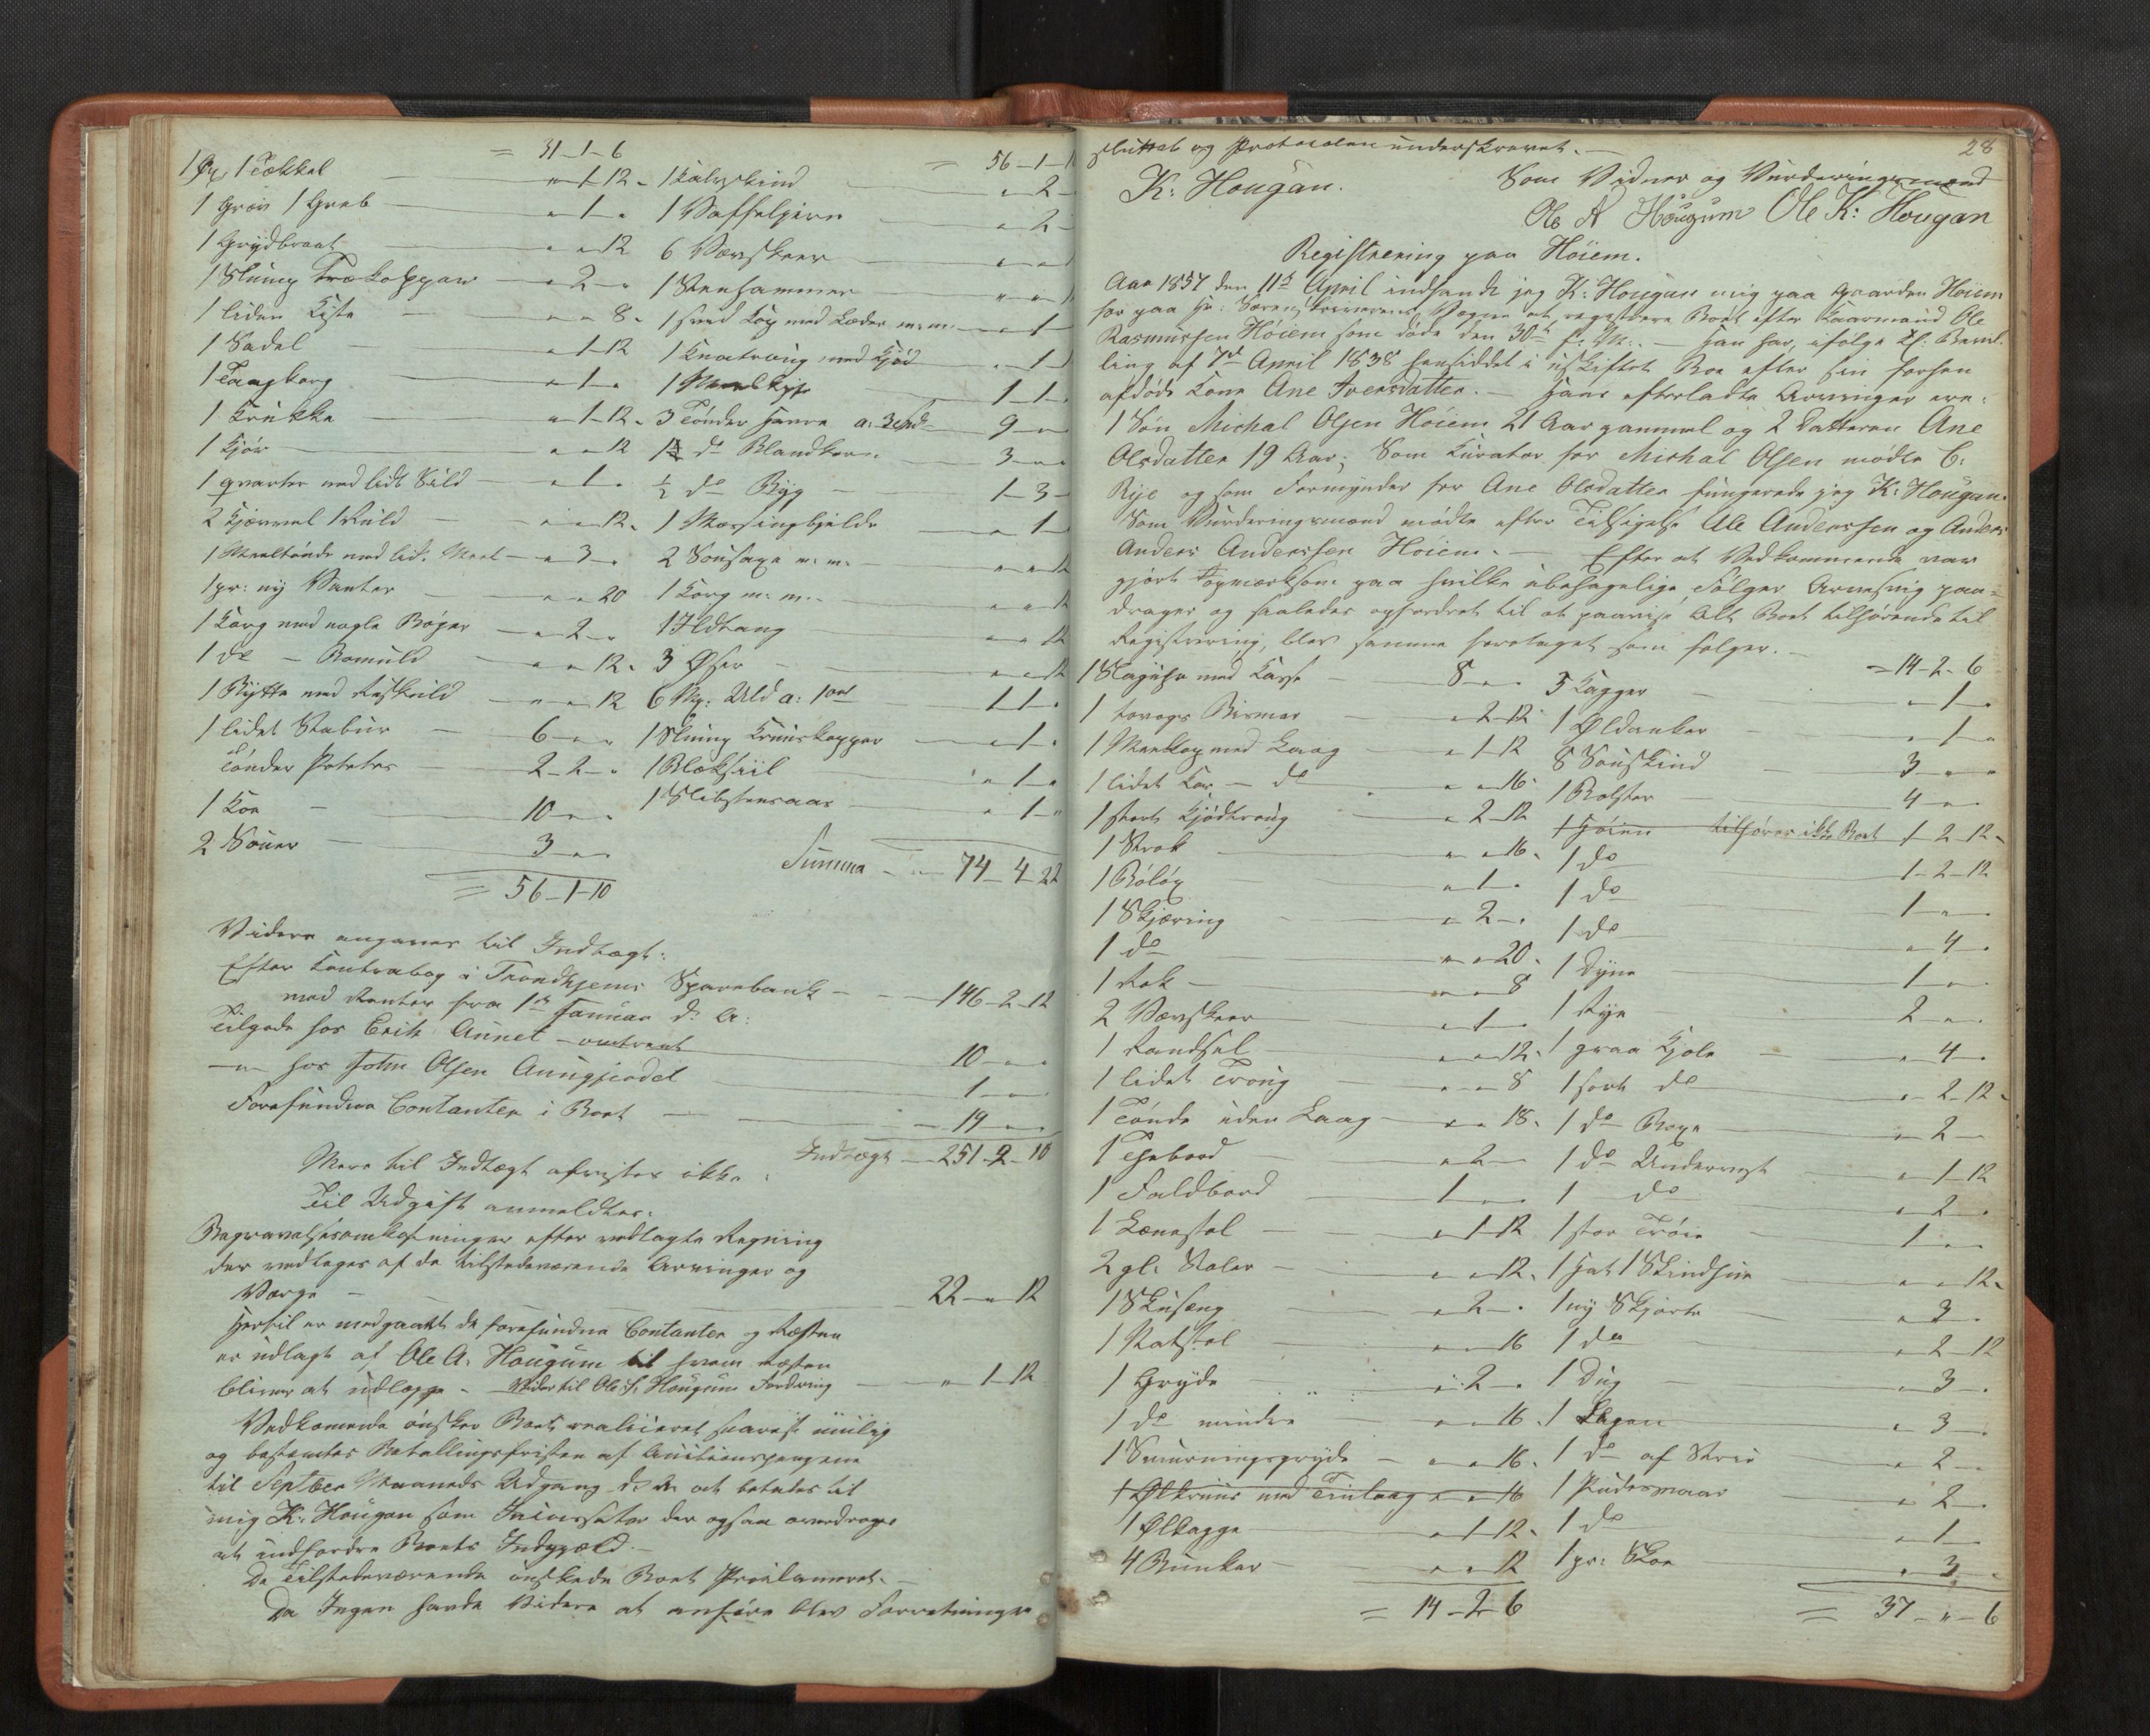 = 31-1-6
1 Øx, 1 Tækkel — " 1-12
1 Grev 1 Greb — " 1 "
1 Grydbraat — " " 12
1 Slump Trækopper — " 2 "
1 liden Kiste — " " 8
1 Sadel — " 1-12
1 Taagkorg — " 1 "
1 Krukke — " 1-12
1 Kjør — " " 12
1 qvarter med lidt Sild — " 1 "
2 Kjærrel 1 Ruld — " " 12
1 Meeltønde med lidt Meel — " 3 "
1 pr: ny Vanter — " " 20
1 Korg med nogle Bøger — " 2 "
1 do — Bomuld — " " 12
1 Bytte med — " " 12
1 lidet Stabur — 6 " "
Tønder Poteter — 2-2 "
1 Koe — 10 " "
2 Souer — 3 " "
= 56-1-10
= 56-1-10
1 Kalvskind — " 2
1 Vaffeljern — " 2
6 Vævskeer
1 Steenhammer
— " 1
1 Knatroug med Kjød — " 1
1 — 1-1
3 Tønder Havre a: 3 Spd — 9 "
do Blandkorn — 3 " "
½ do Byg — 1-3
1 Messingbjelde — " 1
2 Sousaxe m: m:
1 Korg m: m:
1 Ildtang — " " 12
3 Øser — " " 12
6 Mk: Uld a: 1 ort — 1-1
1 Slump Kruuskopper — " 1 "
1 Blækfiil — " 1 "
1 Slibsteensaas — " 1 "
Summa — 74-4-22
Videre angaves til Indtægt:
Efter Contrabog i Trondhjems Sparebank — 146-2-12
med Renter fra 1ste Januar d: A:
Tilgode hos Erik Aunet — omtrent — 10 " "
— " — hos John Olsen Aungjerdet — 1 " "
Forefundne Contanter i Boet — 19 " "
Indtægt — 251-2-10
Mere til Indtægt afvistes ikke.
Til Udgift anmeldtes:
Begravelsesomkostninger efter vedlagte Regning
der vedtages af de tilstedeværende Arvinger og
Værge — 22 " 12
Hertil er medgaaet de forefundne Contanter og Resten
er udlagt af Ole A. Hougum til hvem Resten
bliver at udlægge. — Videre til Ole J. Hougum Fordring — " 1-12
Vedkommende ønsker Boets realiseret snarest muulig
og bestemtes Betallingsfristen af Auctionspengene
til September Maaneds Udgang d: A: at betales til
mig K: Hougan som Incassator der ogsaa overdrages
at indfordre Boets Indgjæld. —
De Tilstedeværende ønskede Boet Proclameret. —
Da Ingen havde Videre at anføre blev Forretningen
28
sluttet og Protocolen underskrevet. —
K: Hougan.
Som Vidner og Vurderingsmænd
Ole A Hougum Ole K: Hougan
Registrering paa Høiem.
Aar 1857 den 11te April indfandt jeg K: Hougan mig paa Gaarden Høiem
for paa Hr. Sorenskriverens Vegne at registrere Boet efter Kaarmand Ole
Rasmussen Høiem som døde den 30te f: M: — Han har, ifølge Kgl: Bevil-
ling af 7de April 1838 hensiddet i uskiftet Boe efter sin forhen
afdøde Kone Ane Iversdatter. — Hans efterladte Arvinger ere:
1 Søn Michal Olsen Høiem 21 Aar gammel og 2 Datteren Ane
Olsdatter 19 Aar; Som Curator for Michal Olsen mødte C:
Rye og som Formynder for Ane Olsdatter fungerede jeg K: Hougan.
Som Vurderingsmænd mødte efter Tilsigelse Ole Anderssen og Anders
Anders Anderssen Høiem. — Efter at Vedkommende var
gjort opmærksom paa hvilke ubehagelige Følger Arvesvig paa-
drager og saaledes opfordret til at paavise Alt Boet tilhørende til
Registrering, blev samme foretaget som følger. —
1 Slaguhr med Kasse — 8 " "
1 tovogs Bismer — " 2-12
1 Meelkop med Laag — " 1-12
1 lidet Kar — do — " " 16
1 stort Kjødtroug — " 2-12
1 Strok — " " 16
1 Boløx — " 1 "
1 Skjæring — " 2 "
1 do — " " 20
1 Rok — " " 8
2 Vævskeer — " 1 "
1 Randsel — " " 12
1 lidet Troug — " " 8
1 Tønde uden Laag — " " 18
1 Thebord — " 2 "
1 Faldbord — 1 " "
1 Lænestol — " 1-12
2 gl: Stoler — " " 12
1 Skusæng — " 2 "
1 Natstol — " " 16
1 Gryde — " 2 "
1 do mindre — " " 16
1 Smurningsgryde — " " 16
1 Ølkruus med Tinlaag " " 16
1 Ølkagge — " 1-12
4 Bunker — " " 12
= 14-2-6
= 14-2-6
5 Kagger — " 1 "
1 Øldanker — " 1 "
8 Souskind — 3 " "
1 Bolster — 4 " "
1 Høien tilhører ikke Boet 1-2-12
1 do — 1-2-12
1 do — 1 " "
1 do — " 4 "
1 Dyne — 1 " "
1 Rye — 2 " "
1 graa Kjole — " 4 "
1 sort do — " 2-12
1 do Boxe — " 2 "
1 do Undervest — " 1-12
1 do — " 2 "
1 stor Trøie — 1 " "
1 Hat 1 Skindhue — " " 12
1 ny Skjorte — " 3 "
1 do — " 2-12
1 Dug — " 3 "
1 Lagen — " 3 "
1 do af Strie — " 2 "
1 Pudevaar — " 2 "
1 do — " 1 "
1 pr: Skoe — " 3 "
= 37 - " - 6